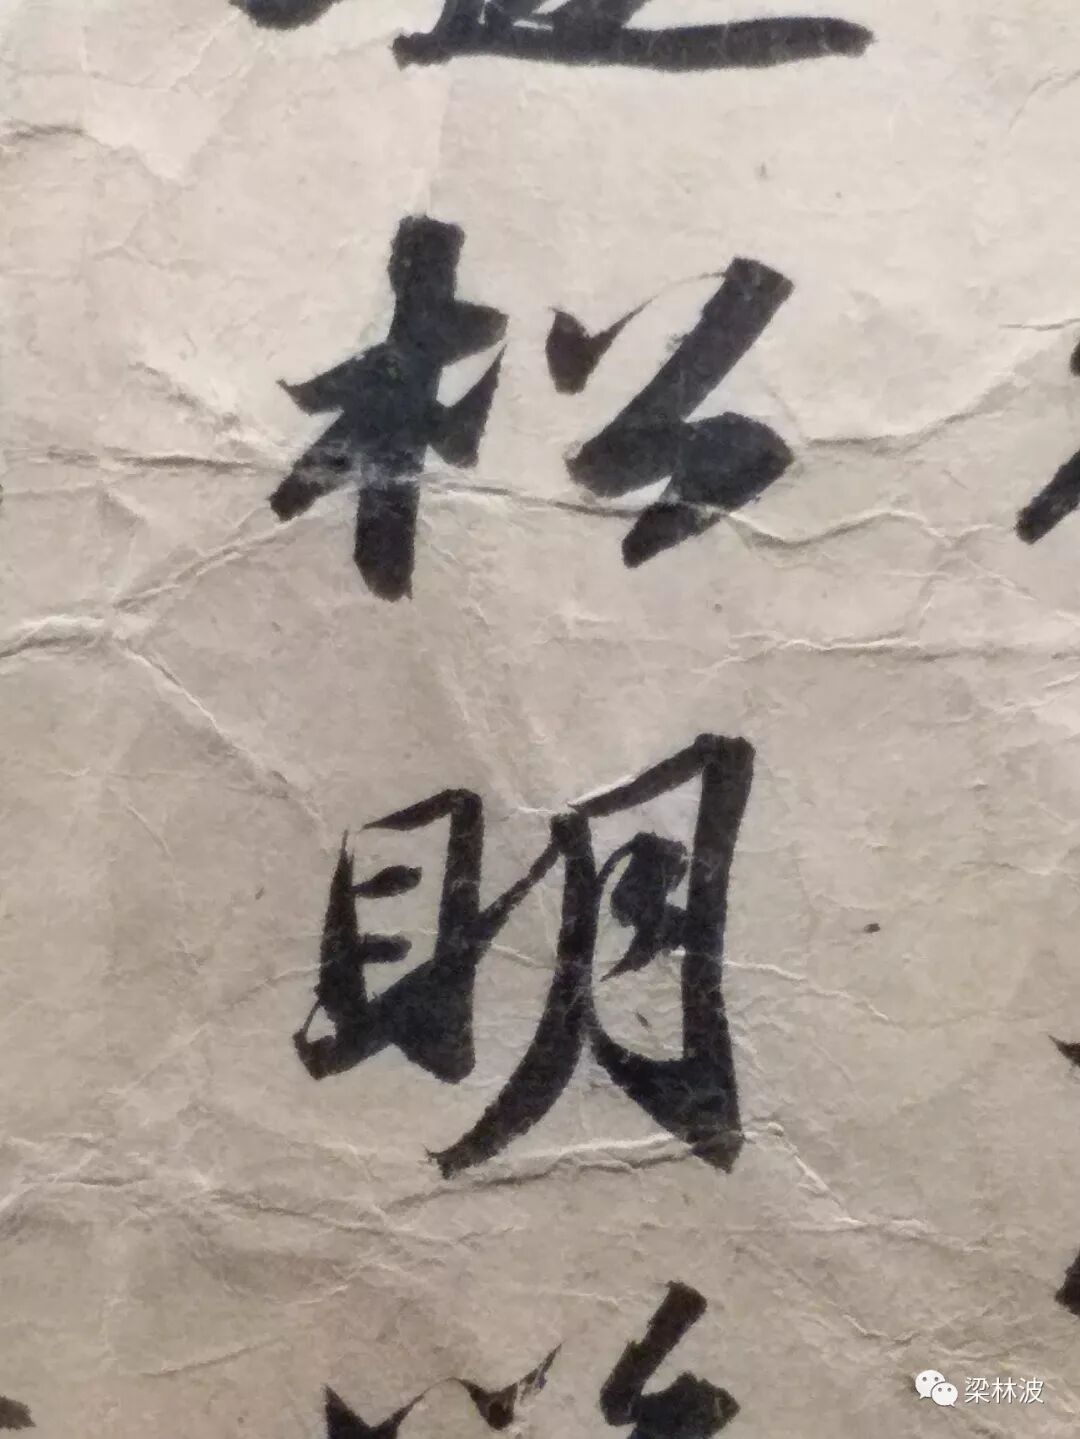 松明
梁林波